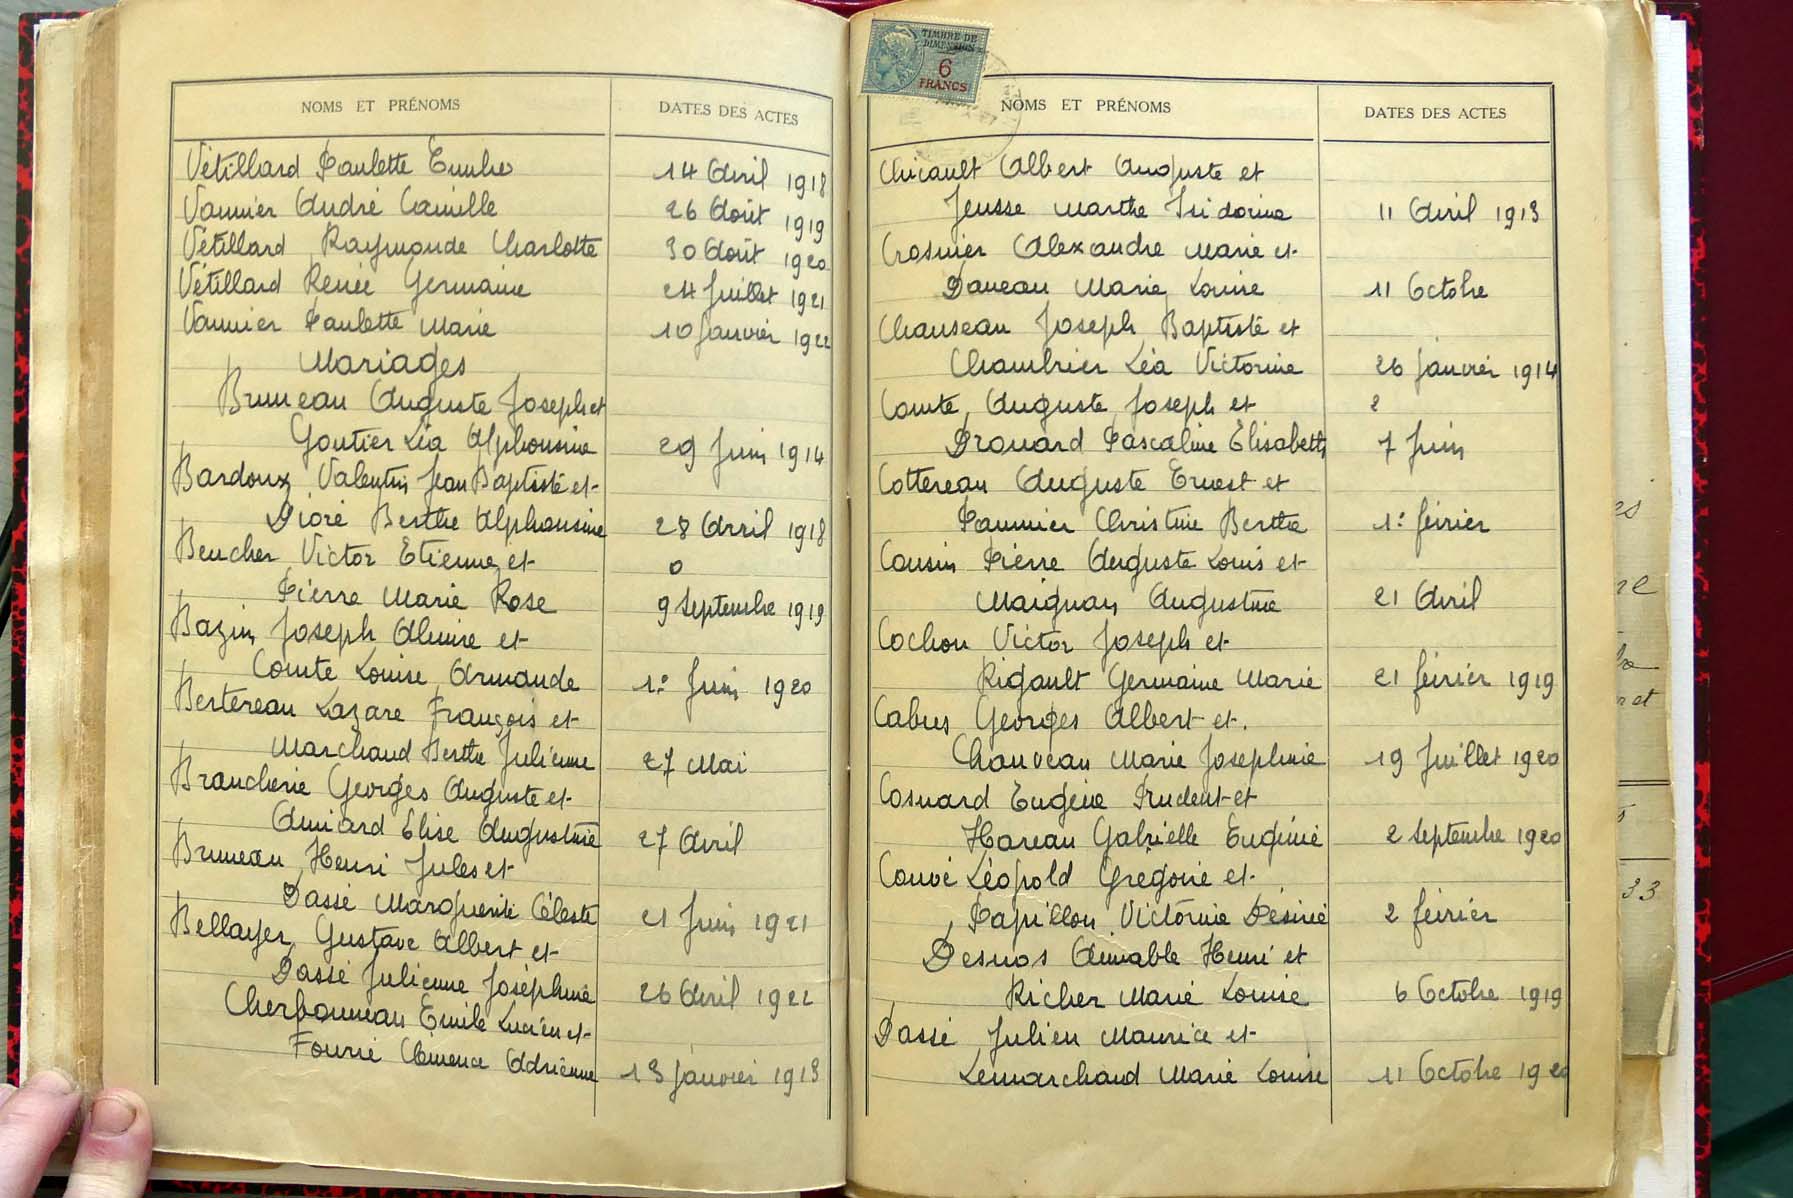 NOMS ET PRÉNOMS DATES DES ACTES
Vétillard Paulette 14 Avril 1918
Vannier André Camille 26 Août 1919
Vétillard Raymonde Charlotte 30 Août 1920
Vétillard Renée Germaine 24 Juillet 1921
Vannier Paulette Marie 10 Janvier 1922
Mariages
Bruneau Auguste Joseph et
Goutier Léa Alphonsine 29 Juin 1914
Bardoux Valentin Jean Baptiste et
Dioré Berthe Alphonsine 28 Avril 1918
Beucher Victor Etienne et
Pierre Marie Rose 9 Septembre 1919
Bazin Joseph et
Comte Louise Armande 1er Juin 1920
Bertereau Lazare François et
Marchand Berthe Julienne 27 Mai
Brancherie Georges Auguste et
Amiard Elise Augustine 27 Avril
Bruneau Henri Jules et
Dassé Marguerite Céleste 21 Juin 1921
Bellayer Gustave Albert et
Dassé Julienne Joséphine 26 Avril 1922
Cherbonneau Emile Lucien et
Fourié Clémence Adrienne 13 Janvier 1913
TIMBRE DE
DIMENSION
6
FRANCS
NOMS ET PRÉNOMS DATES DES ACTES
Albert Auguste et
Jeusse Marthe Isidorine 11 Avril 1913
Crosnier Alexandre Marie et
Daveau Marie Louise 11 Octobre
Chauseau Joseph Baptiste et
Chambrier Léa Victorine 26 Janvier 1914
Comte Auguste Joseph et 2
Drouard Pascaline Elisabeth 7 Juin
Cottereau Auguste Ernest et
Paumier Christine Berthe 1er février
Cousin Pierre Auguste Louis et
Maignan Augustine 21 Avril
Cochon Victor Joseph et
Rigault Germaine Marie 21 février 1919
Cabus Georges Albert et.
Chauveau Marie Josephine 19 Juillet 1920
Cosnard Eugène Prudent et
Hareau Gabrielle Eugénie 2 Septembre 1920
Couvé Léopold Grégoire et
Papillon Victorine Désirée 2 février
Desnos Aimable Henri et
Richer Marie Louise 6 Octobre 1919
Dassé Julien Maurice et
Lemarchand Marie Louise 11 Octobre 1920
33